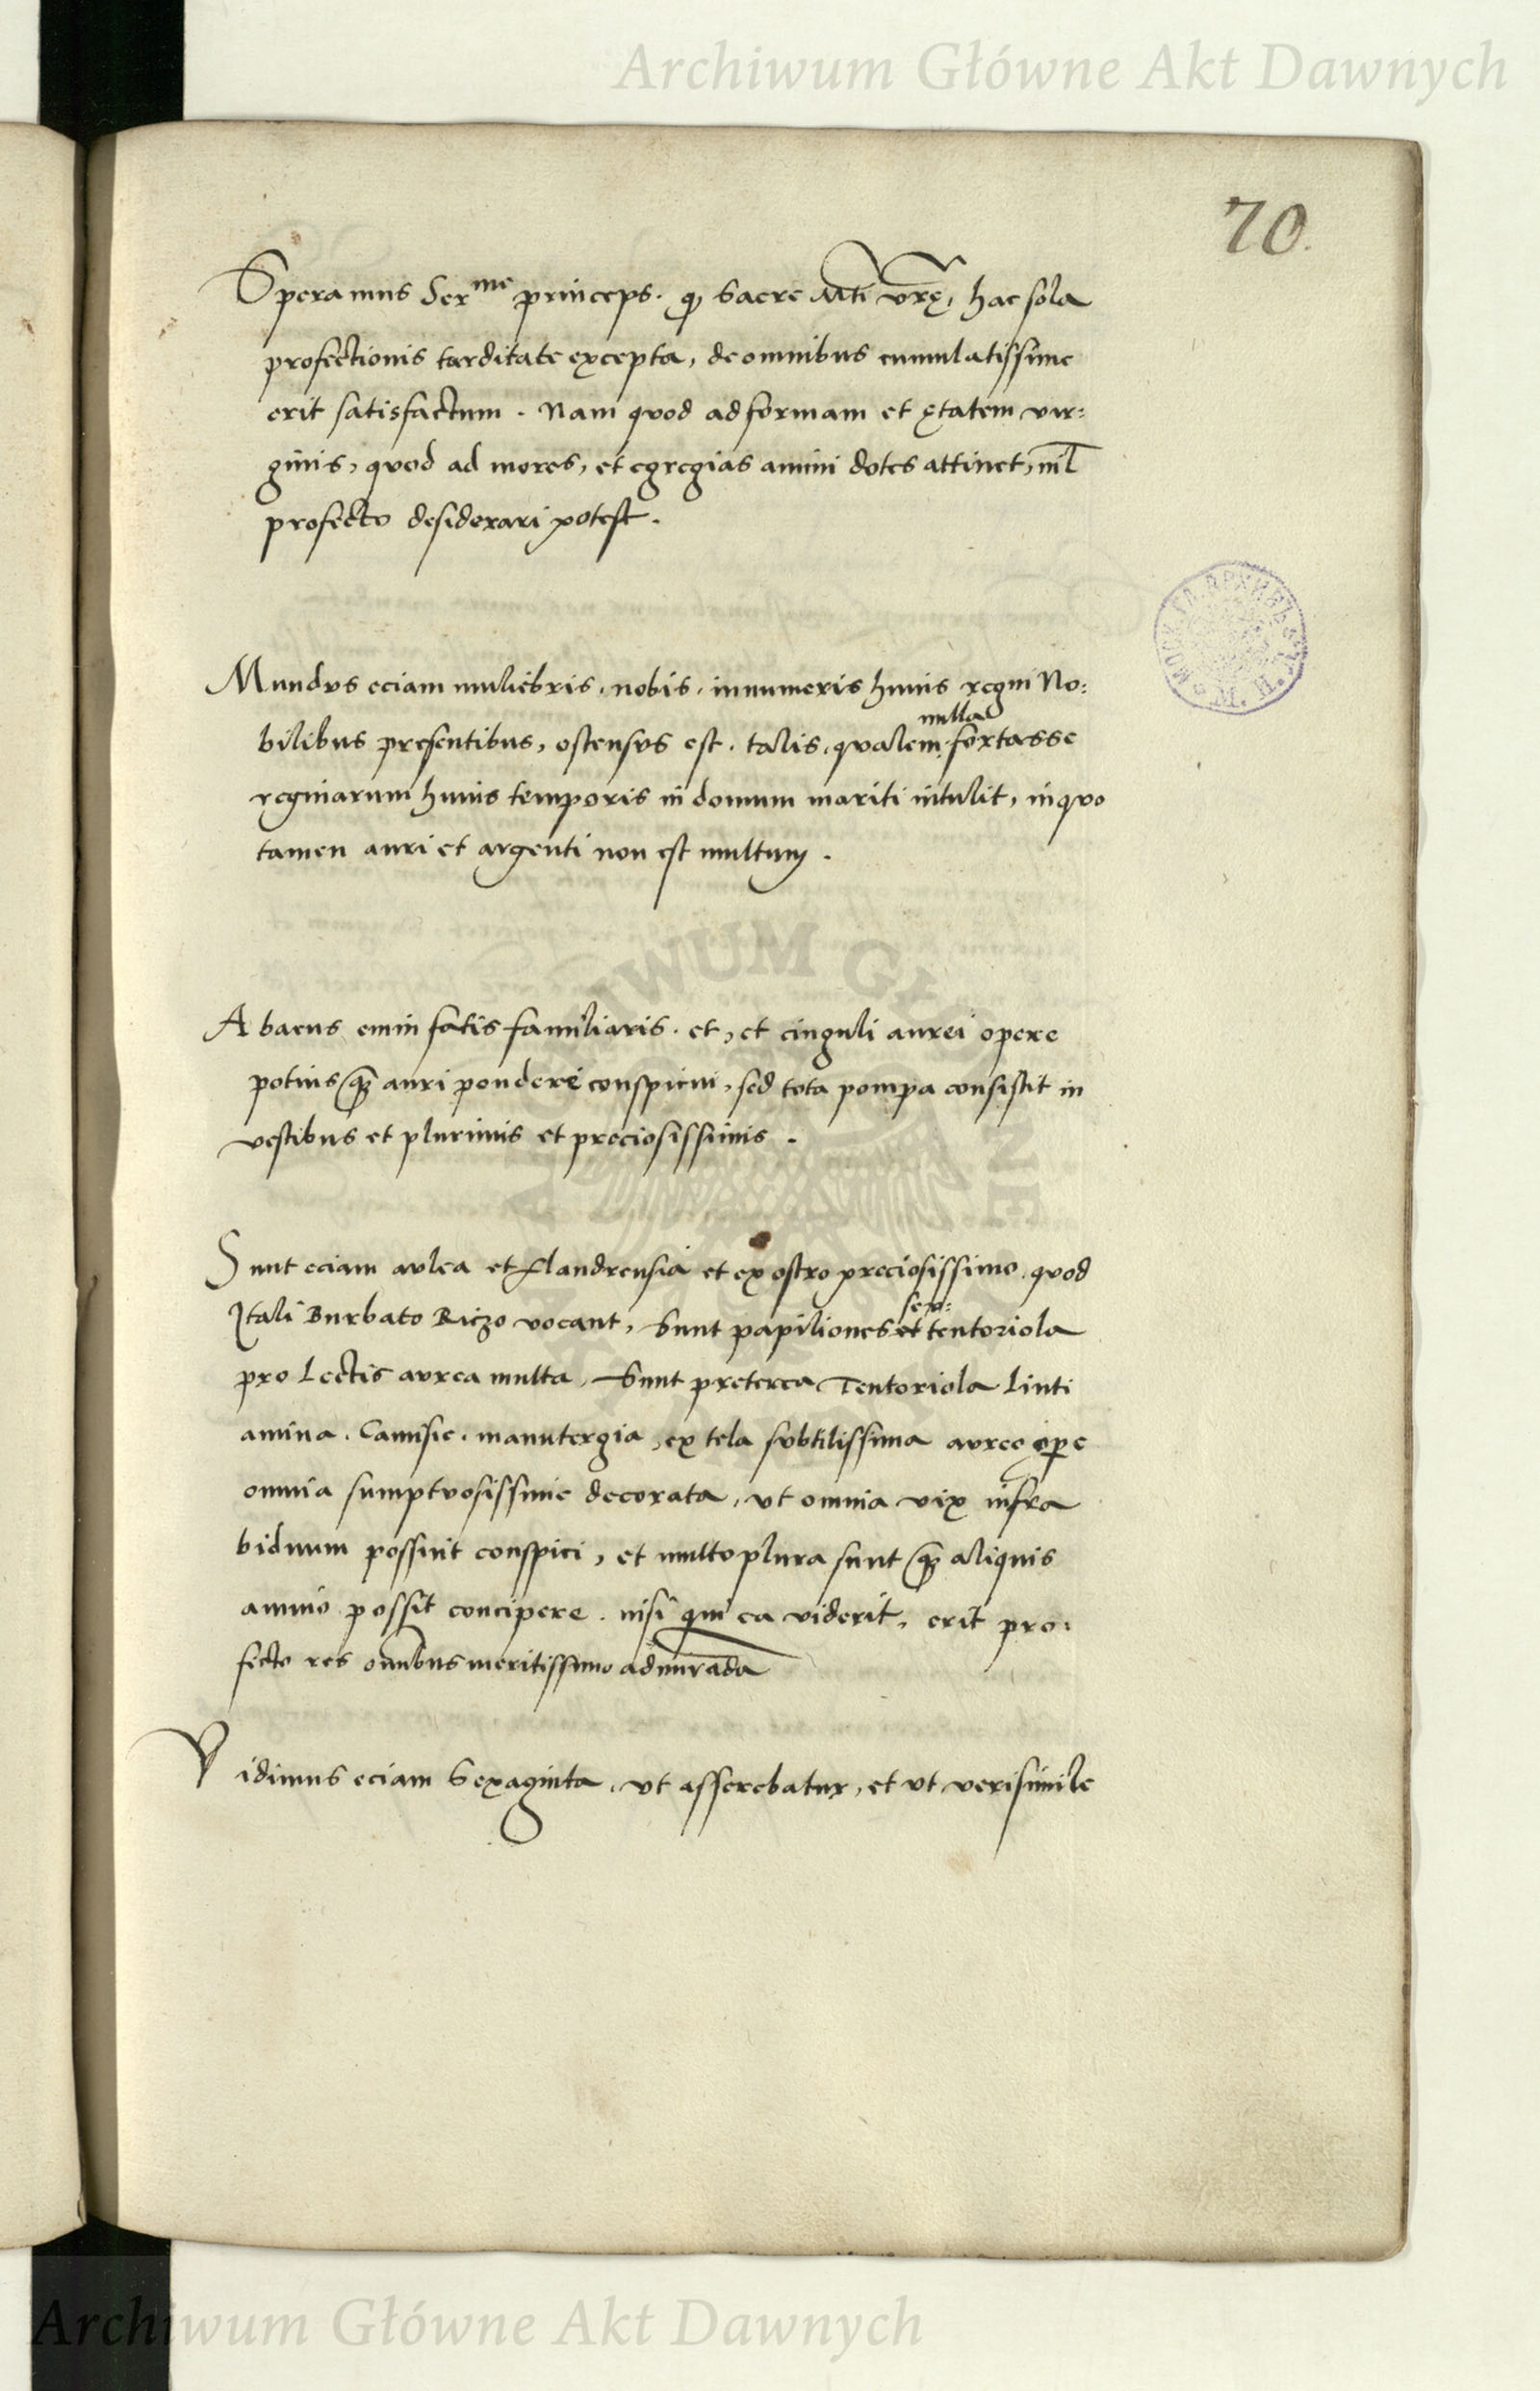 Archiwum Główne Akt Dawnych
70.
Speramus Ser^me princeps. q, Sacre M̃ti vr̃ę, hac sola
profectionis tarditate excepta, de omnibus cumulatissime
erit satisfactum. Nam quod ad formam et ętatem vir:
ginis, quod ad mores, et egregias animi dotes attinet, nil̄
profecto desiderari potest.
Mundus eciam muliebris, nobis, innumeris huius regni No:
nulla
bilibus presentibus, ostensus est. talis, qualem, fortasse
reginarum huius temporis in domum mariti intulit, in quo
tamen auri et argenti non est multum.
Abacus enim satis familiaris. et, et cinguli aurei opere
potius q̃ auri pondere conspicui, sed tota pompa consistit in
vestibus et plurimis et preciosissimis.
Sunt eciam aulea et Flandrensia et ex ostro preciosissimo. quod
sex:
Itali Burbato Riczo vocant, Sunt papiliones et tentoriola
pro Lectis aurea multa, Sunt preterea Tentoriola Linti
amina. Camisie. manutergia, ex tela subtilissima aureo ope
omnia sumptuosissime decorata, ut omnia vix infra
biduum possint conspici, et multo plura sunt q̃ aliquis
animo possit concipere. nisi qui ea viderit, erit pro:
fecto res omnibus meritissimo admirãda
Vidimus eciam Sexaginta, ut asserebatur, et ut verisimile
Archiwum Główne Akt Dawnych